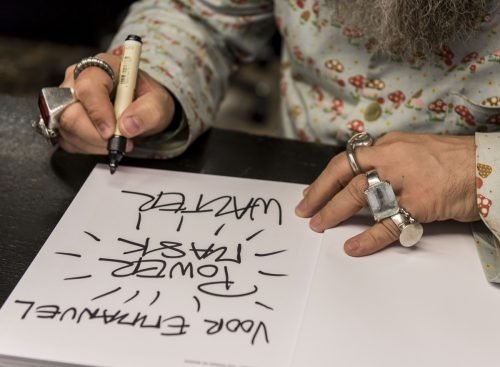 VOOR EMMANUEL
POWER
MASK
WALTER